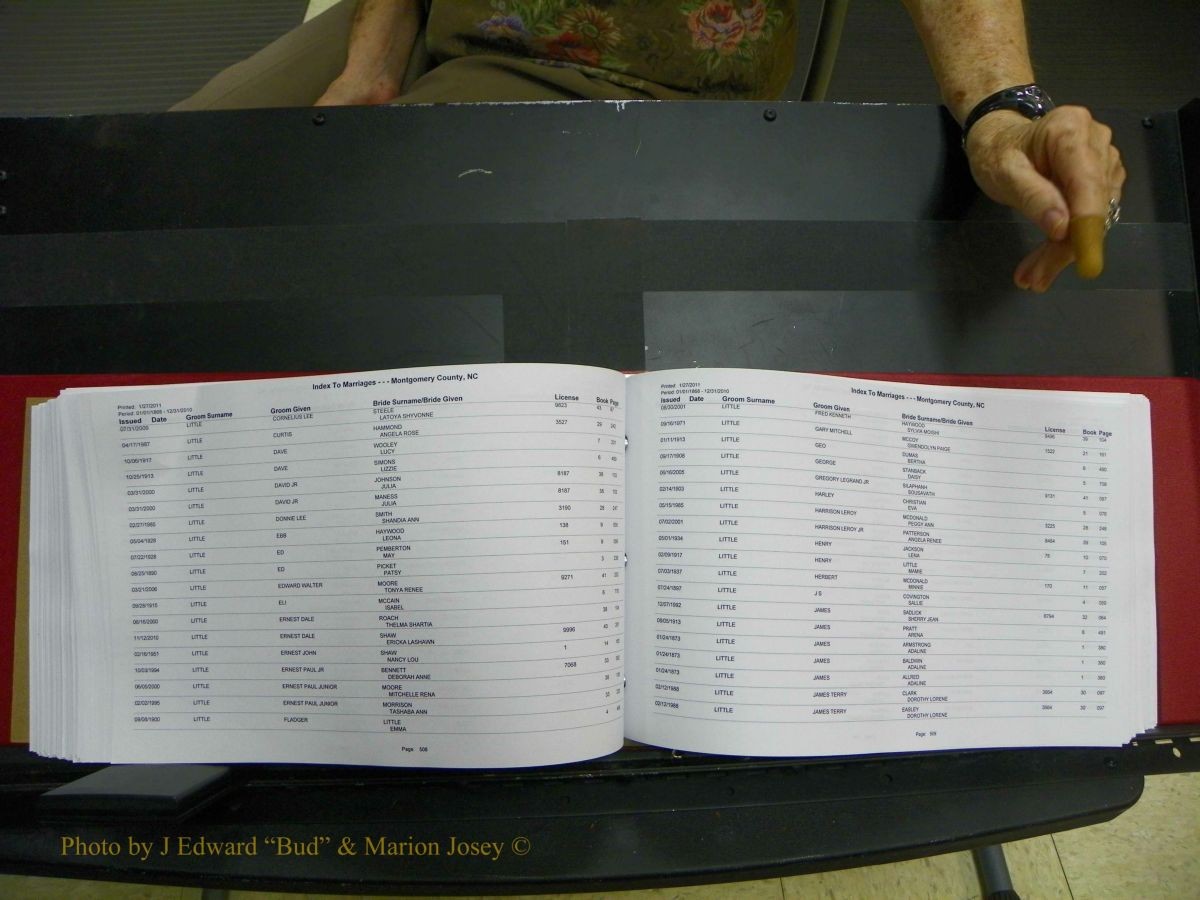 Index To Marriages - - - Montgomery County, NC
Printed: 1/27/2011
Period: 01/01/1868 - 12/31/2010
Issued Date Groom Surname Groom Given Bride Surname/Bride Given License Book Page
LITTLE CORNELIUS LEE STEELE 9823 43
LATOYA SHYVONNE
04/17/1987 LITTLE CURTIS HAMMOND 3527 29
ANGELA ROSE
10/06/1917 LITTLE DAVE WOOLEY 7
LUCY
10/25/1913 LITTLE DAVE SIMONS 6
LIZZIE
03/31/2000 LITTLE DAVID JR JOHNSON 8187 38
JULIA
03/31/2000 LITTLE DAVID JR MANESS 8187 38
JULIA
02/27/1985 LITTLE DONNIE LEE SMITH 3190 28
SHANDIA ANN
05/04/1928 LITTLE EBB HAYWOOD 138 9
LEONA
07/22/1928 LITTLE ED PEMBERTON 151 9
MAY
08/25/1890 LITTLE ED PICKET
PATSY
03/21/2006 LITTLE EDWARD WALTER MOORE 9271 41
TONYA RENEE
09/28/1915 LITTLE ELI MCCAIN
ISABEL
06/16/2000 LITTLE ERNEST DALE ROACH
THELMA SHARTIA
11/12/2010 LITTLE ERNEST DALE SHAW 9996
ERICKA LASHAWN
02/16/1951 LITTLE ERNEST JOHN SHAW 1
NANCY LOU
10/03/1994 LITTLE ERNEST PAUL JR BENNETT 7068
DEBORAH ANNE
06/05/2000 LITTLE ERNEST PAUL JUNIOR MOORE
MITCHELLE RENA
02/02/1995 LITTLE ERNEST PAUL JUNIOR MORRISON
TASHABA ANN
09/08/1900 LITTLE FLADGER LITTLE
EMMA
Page: 508
Index To Marriages - - - Montgomery County, NC
Printed: 1/27/2011
Period: 01/01/1868 - 12/31/2010
Issued Date Groom Surname Groom Given Bride Surname/Bride Given License Book Page
LITTLE FRED KENNETH HAYWOOD 39 104
09/16/1971 LITTLE GARY MITCHELL MCCOY 1522 21 161
GWENDOLYN PAIGE
01/11/1913 LITTLE GEO DUMAS 6
BERTHA
09/17/1908 LITTLE GEORGE STANBACK 5
DAISY
06/16/2005 LITTLE GREGORY LEGRAND JR SILAPHANH 9131 41 057
SOUSAVATH
02/14/1903 LITTLE HARLEY CHRISTIAN
EVA
05/15/1985 LITTLE HARRISON LEROY MCDONALD 3225 28
PEGGY ANN
07/02/2001 LITTLE HARRISON LEROY JR PATTERSON 8464 39 105
ANGELA RENEE
05/01/1934 LITTLE HENRY JACKSON 75 10 070
LENA
02/09/1917 LITTLE HENRY LITTLE 7 202
MAMIE
07/03/1937 LITTLE HERBERT MCDONALD 170 11 057
MINNIE
07/24/1897 LITTLE J S COVINGTON 4
SALLIE
12/07/1992 LITTLE JAMES SADLICK 6794 32 084
SHERRY JEAN
LITTLE JAMES PRATT 6 491
ARENA
01/24/1873 LITTLE JAMES ARMSTRONG 1 380
ADALINE
01/24/1873 LITTLE JAMES BALDWIN 1 380
ADALINE
01/24/1873 LITTLE JAMES ALLRED 1 380
ADALINE
02/12/1988 LITTLE JAMES TERRY CLARK 3664 30 097
DOROTHY LORENE
02/12/1988 LITTLE JAMES TERRY EASLEY 3664 30 097
DOROTHY LORENE
Page: 509
Photo by J Edward “Bud” & Marion Josey ©